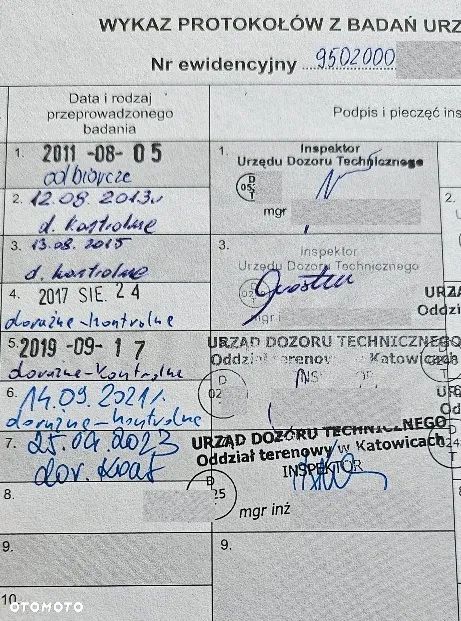 WYKAZ PROTOKOŁÓW Z BADAŃ URZ
Nr ewidencyjny 9502000
Data i rodzaj
przeprowadzonego
badania
Podpis i pieczęć ins
1. 2011 -08- 05
odbiorcze
1. Inspektor
Urzędu Dozoru Technicznego
D
05
T
mgr
2. 12.08 2013r
d. kontrolne
2.
3. 13.08.2015
d. kontrolne
3. Inspektor
Urzędu Dozoru Technicznego
mgr i
4. 2017 SIE. 24
doraźne-kontrolne
URZĄ
Oddzi
5. 2019 -09- 17
doraźne-kontrolne
URZĄD DOZORU TECHNICZNEGO
Oddział terenowy w Katowicach
D
02
6. 14.09.2021r.
doraźne-kontrolne
7. 25.09.2023
dor. kont
URZĄD DOZORU TECHNICZNEGO
Oddział terenowy w Katowicach
INSPEKTOR
D
25
mgr inż
8.
9.
9.
10.
OTOMOTO